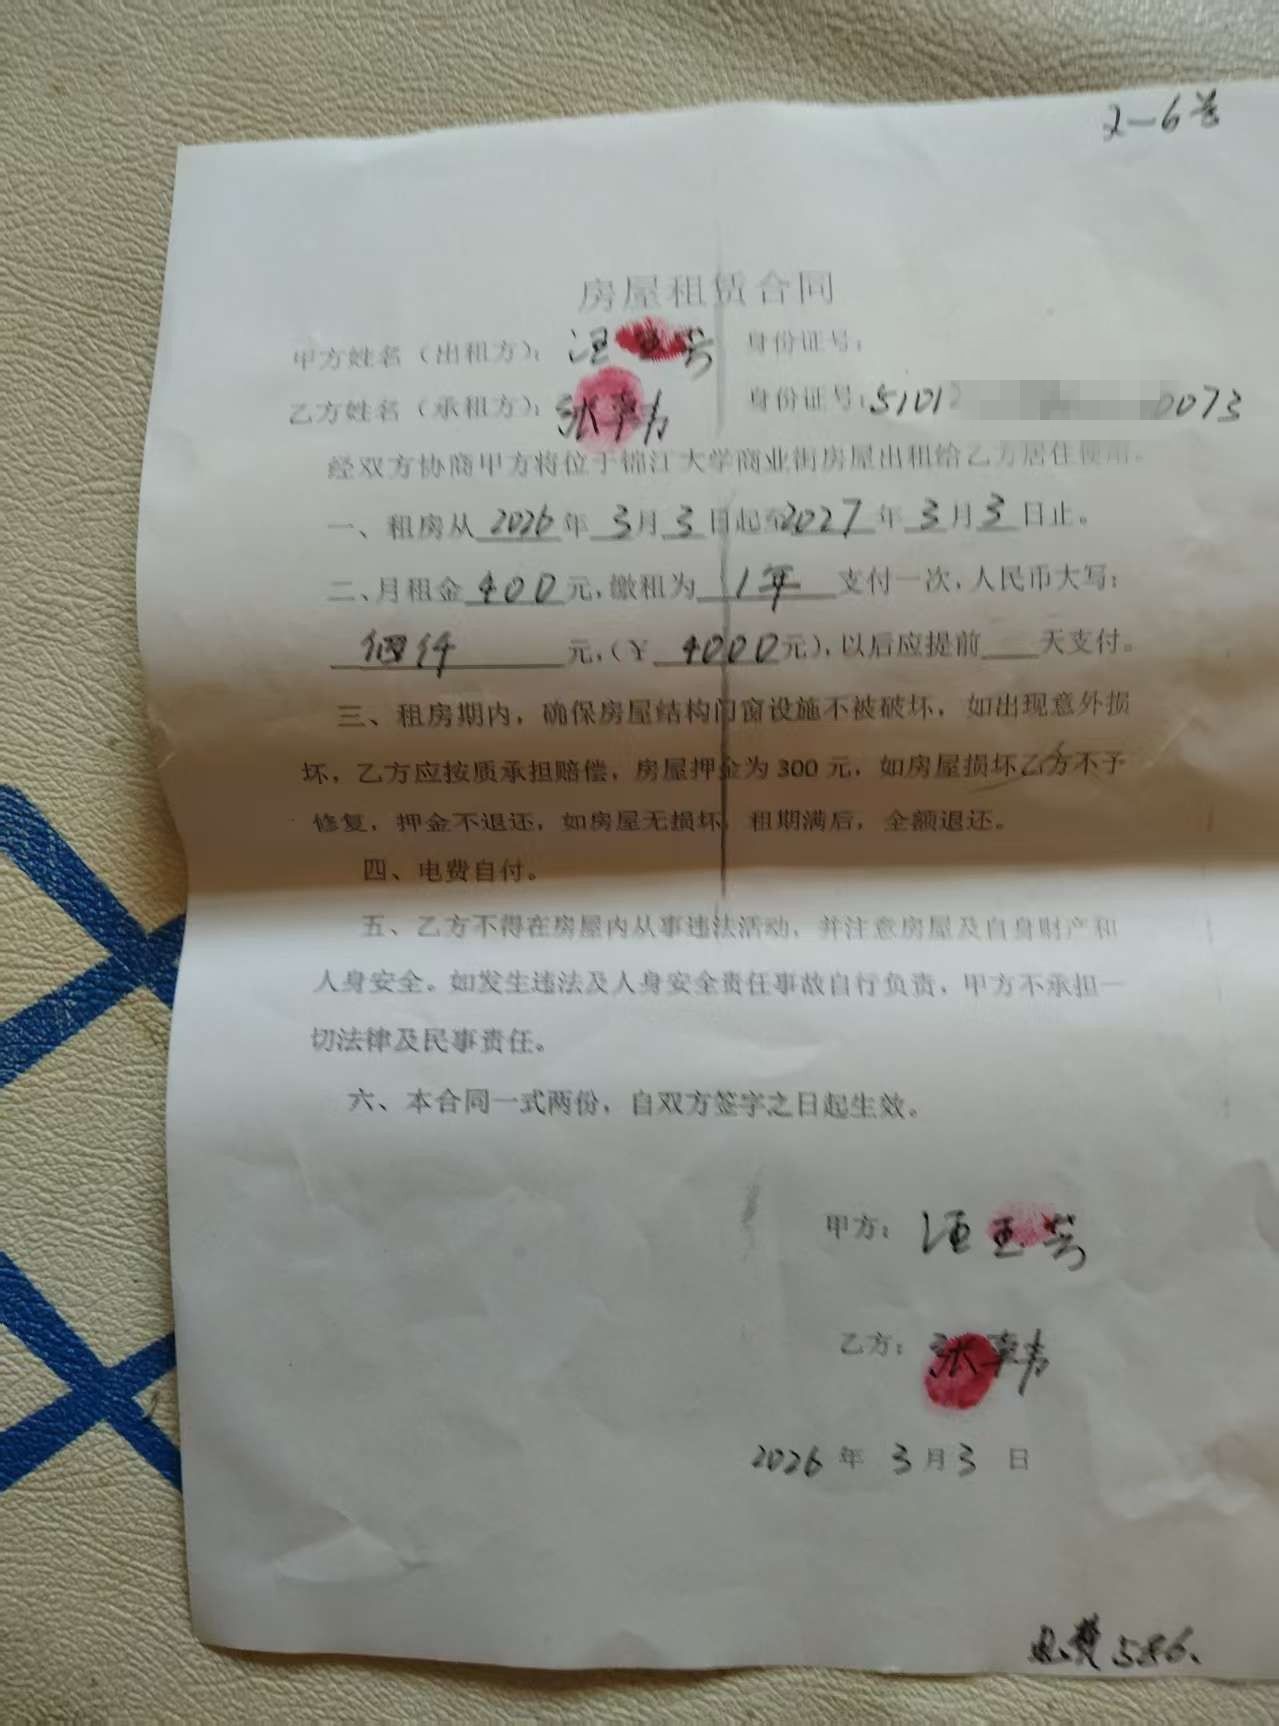 2-6
房屋租赁合同
甲方姓名（出租方）：汪玉芳 身份证号：
乙方姓名（承租方）：张韦 身份证号：51012 0073
经双方协商甲方将位于锦江大学商业街房屋出租给乙方居住使用。
一、租房从2026年3月3日起至2027年3月3日止。
二、月租金400元，缴租为1年支付一次，人民币大写：
肆仟元，（￥4000元），以后应提前 天支付。
三、租房期内，确保房屋结构门窗设施不被破坏，如出现意外损
坏，乙方应按质承担赔偿，房屋押金为300元，如房屋损坏乙方不予
修复，押金不退还，如房屋无损坏，租期满后，全额退还。
四、电费自付。
五、乙方不得在房屋内从事违法活动，并注意房屋及自身财产和
人身安全。如发生违法及人身安全责任事故自行负责，甲方不承担一
切法律及民事责任。
六、本合同一式两份，自双方签字之日起生效。
甲方：汪玉芳
乙方：张韦
2026年3月3日
电费586.